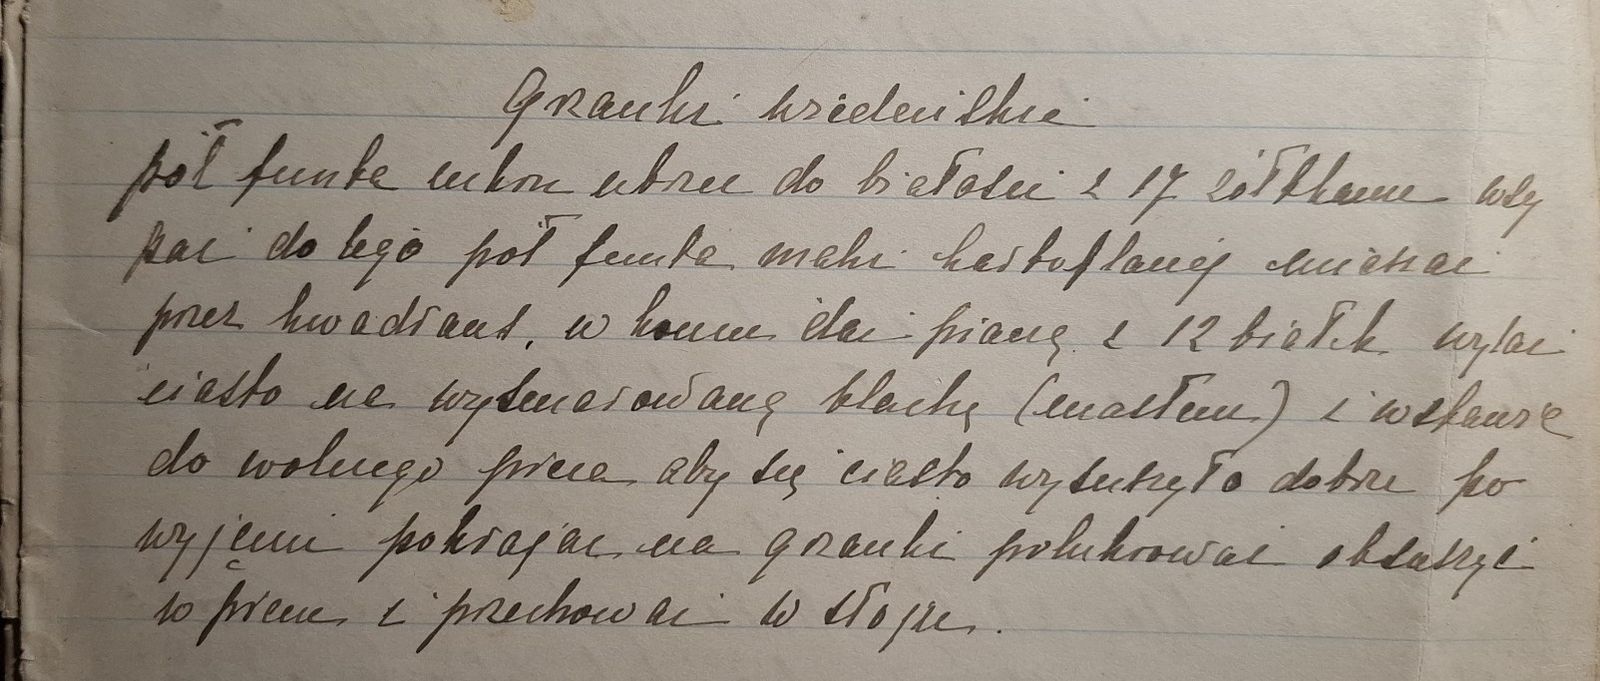 Grzanki wiedeńskie
pół funta cukru utrzeć do białości z 17 żółtkami wsy
pać do tego pół funta mąki kartoflanej mieszać
przez kwadrans, w końcu dać pianę z 12 białek wylać
ciasto na wysmarowaną blachę (masłem) i wstawić
do wolnego pieca aby się ciasto wysuszyło dobrze po
wyjęciu pokrajać na grzanki polukrować obsuszyć
w piecu i przechować w słoju.